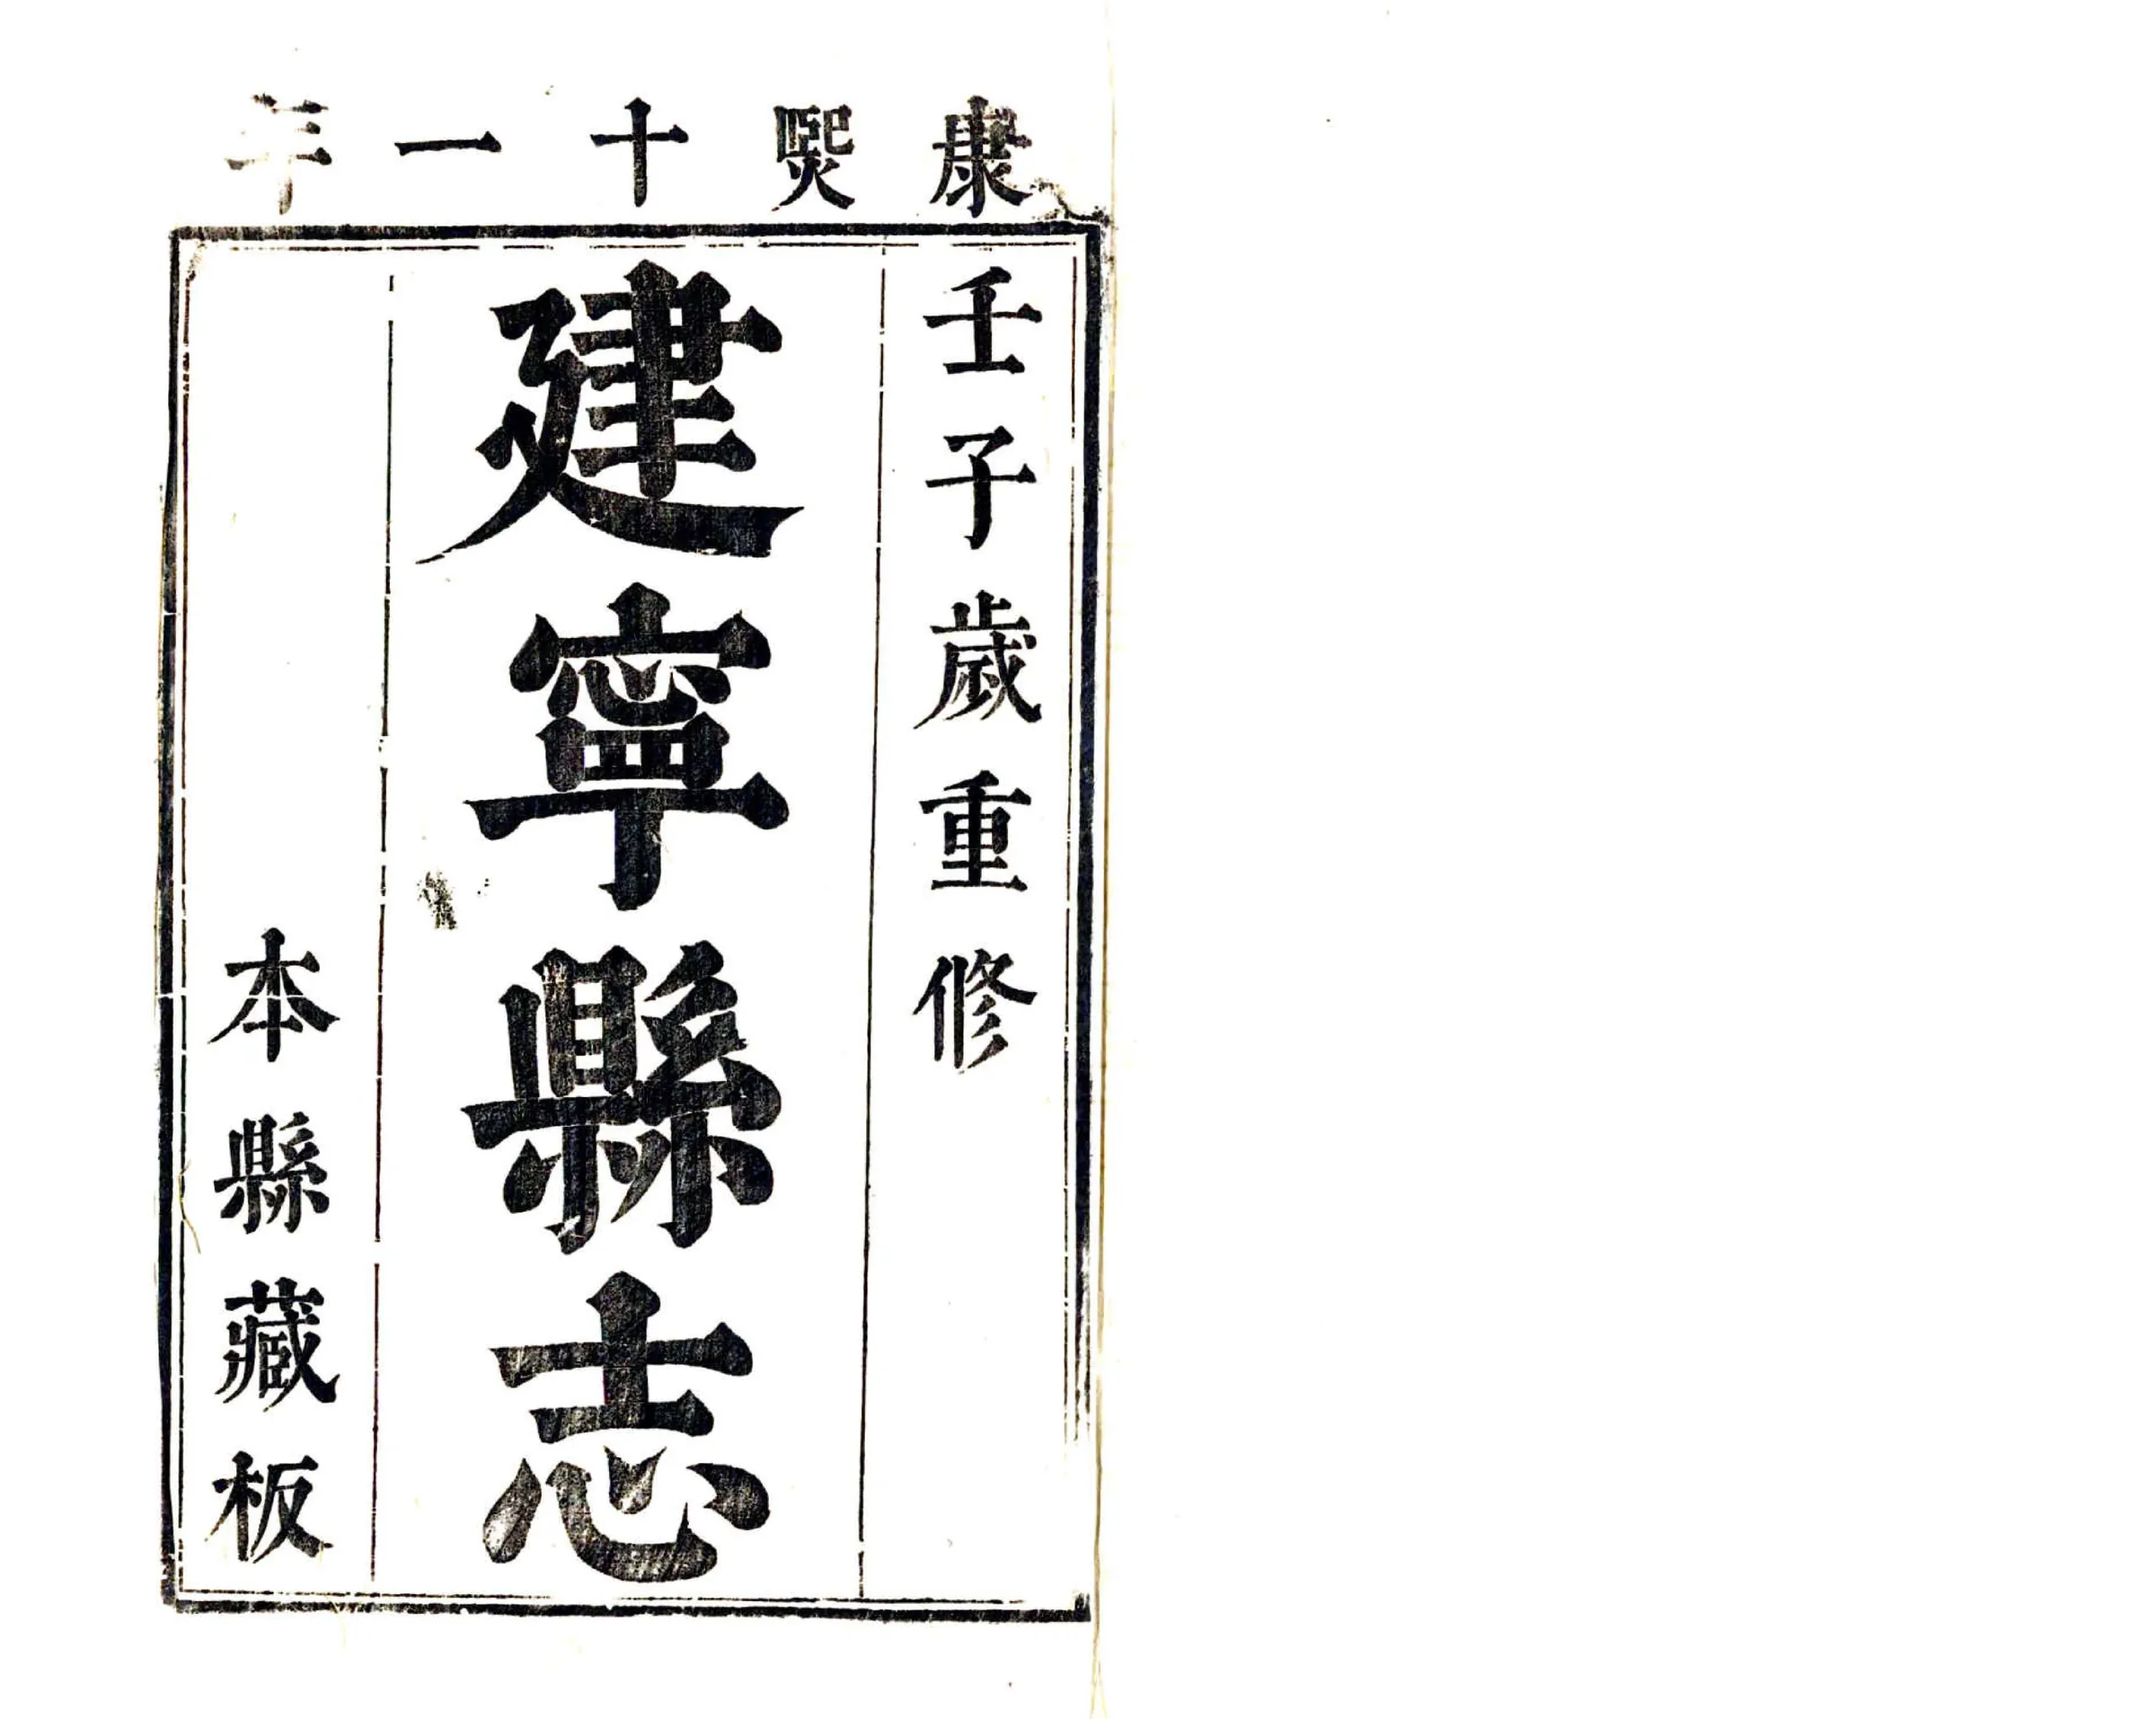 康熈十一年
壬子歲重修
建寧縣志
本縣藏板